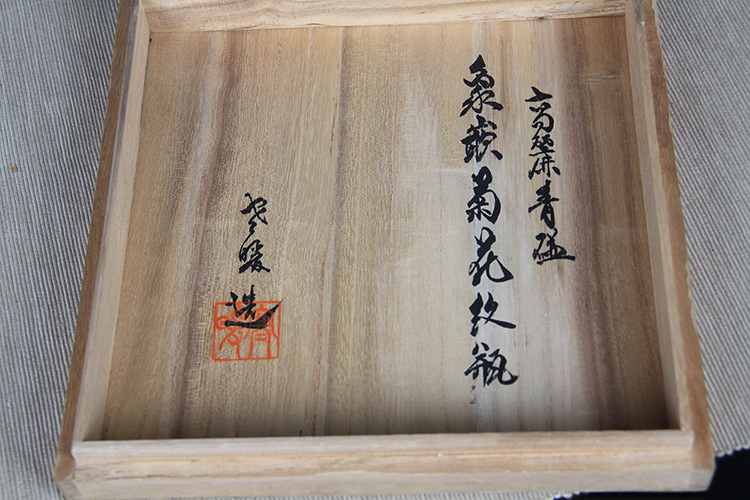 高麗青磁
象嵌菊花紋瓶
造